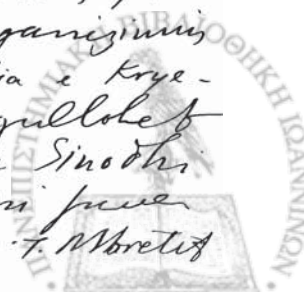 organizimin
ia e Krye-
gullohet
Sinodhi
T. Mbretit
ΠΑΝΕΠΙΣΤΗΜΙΑΚΗ ΒΙΒΛΙΟΘΗΚΗ ΙΩΑΝΝΙΝΩΝ